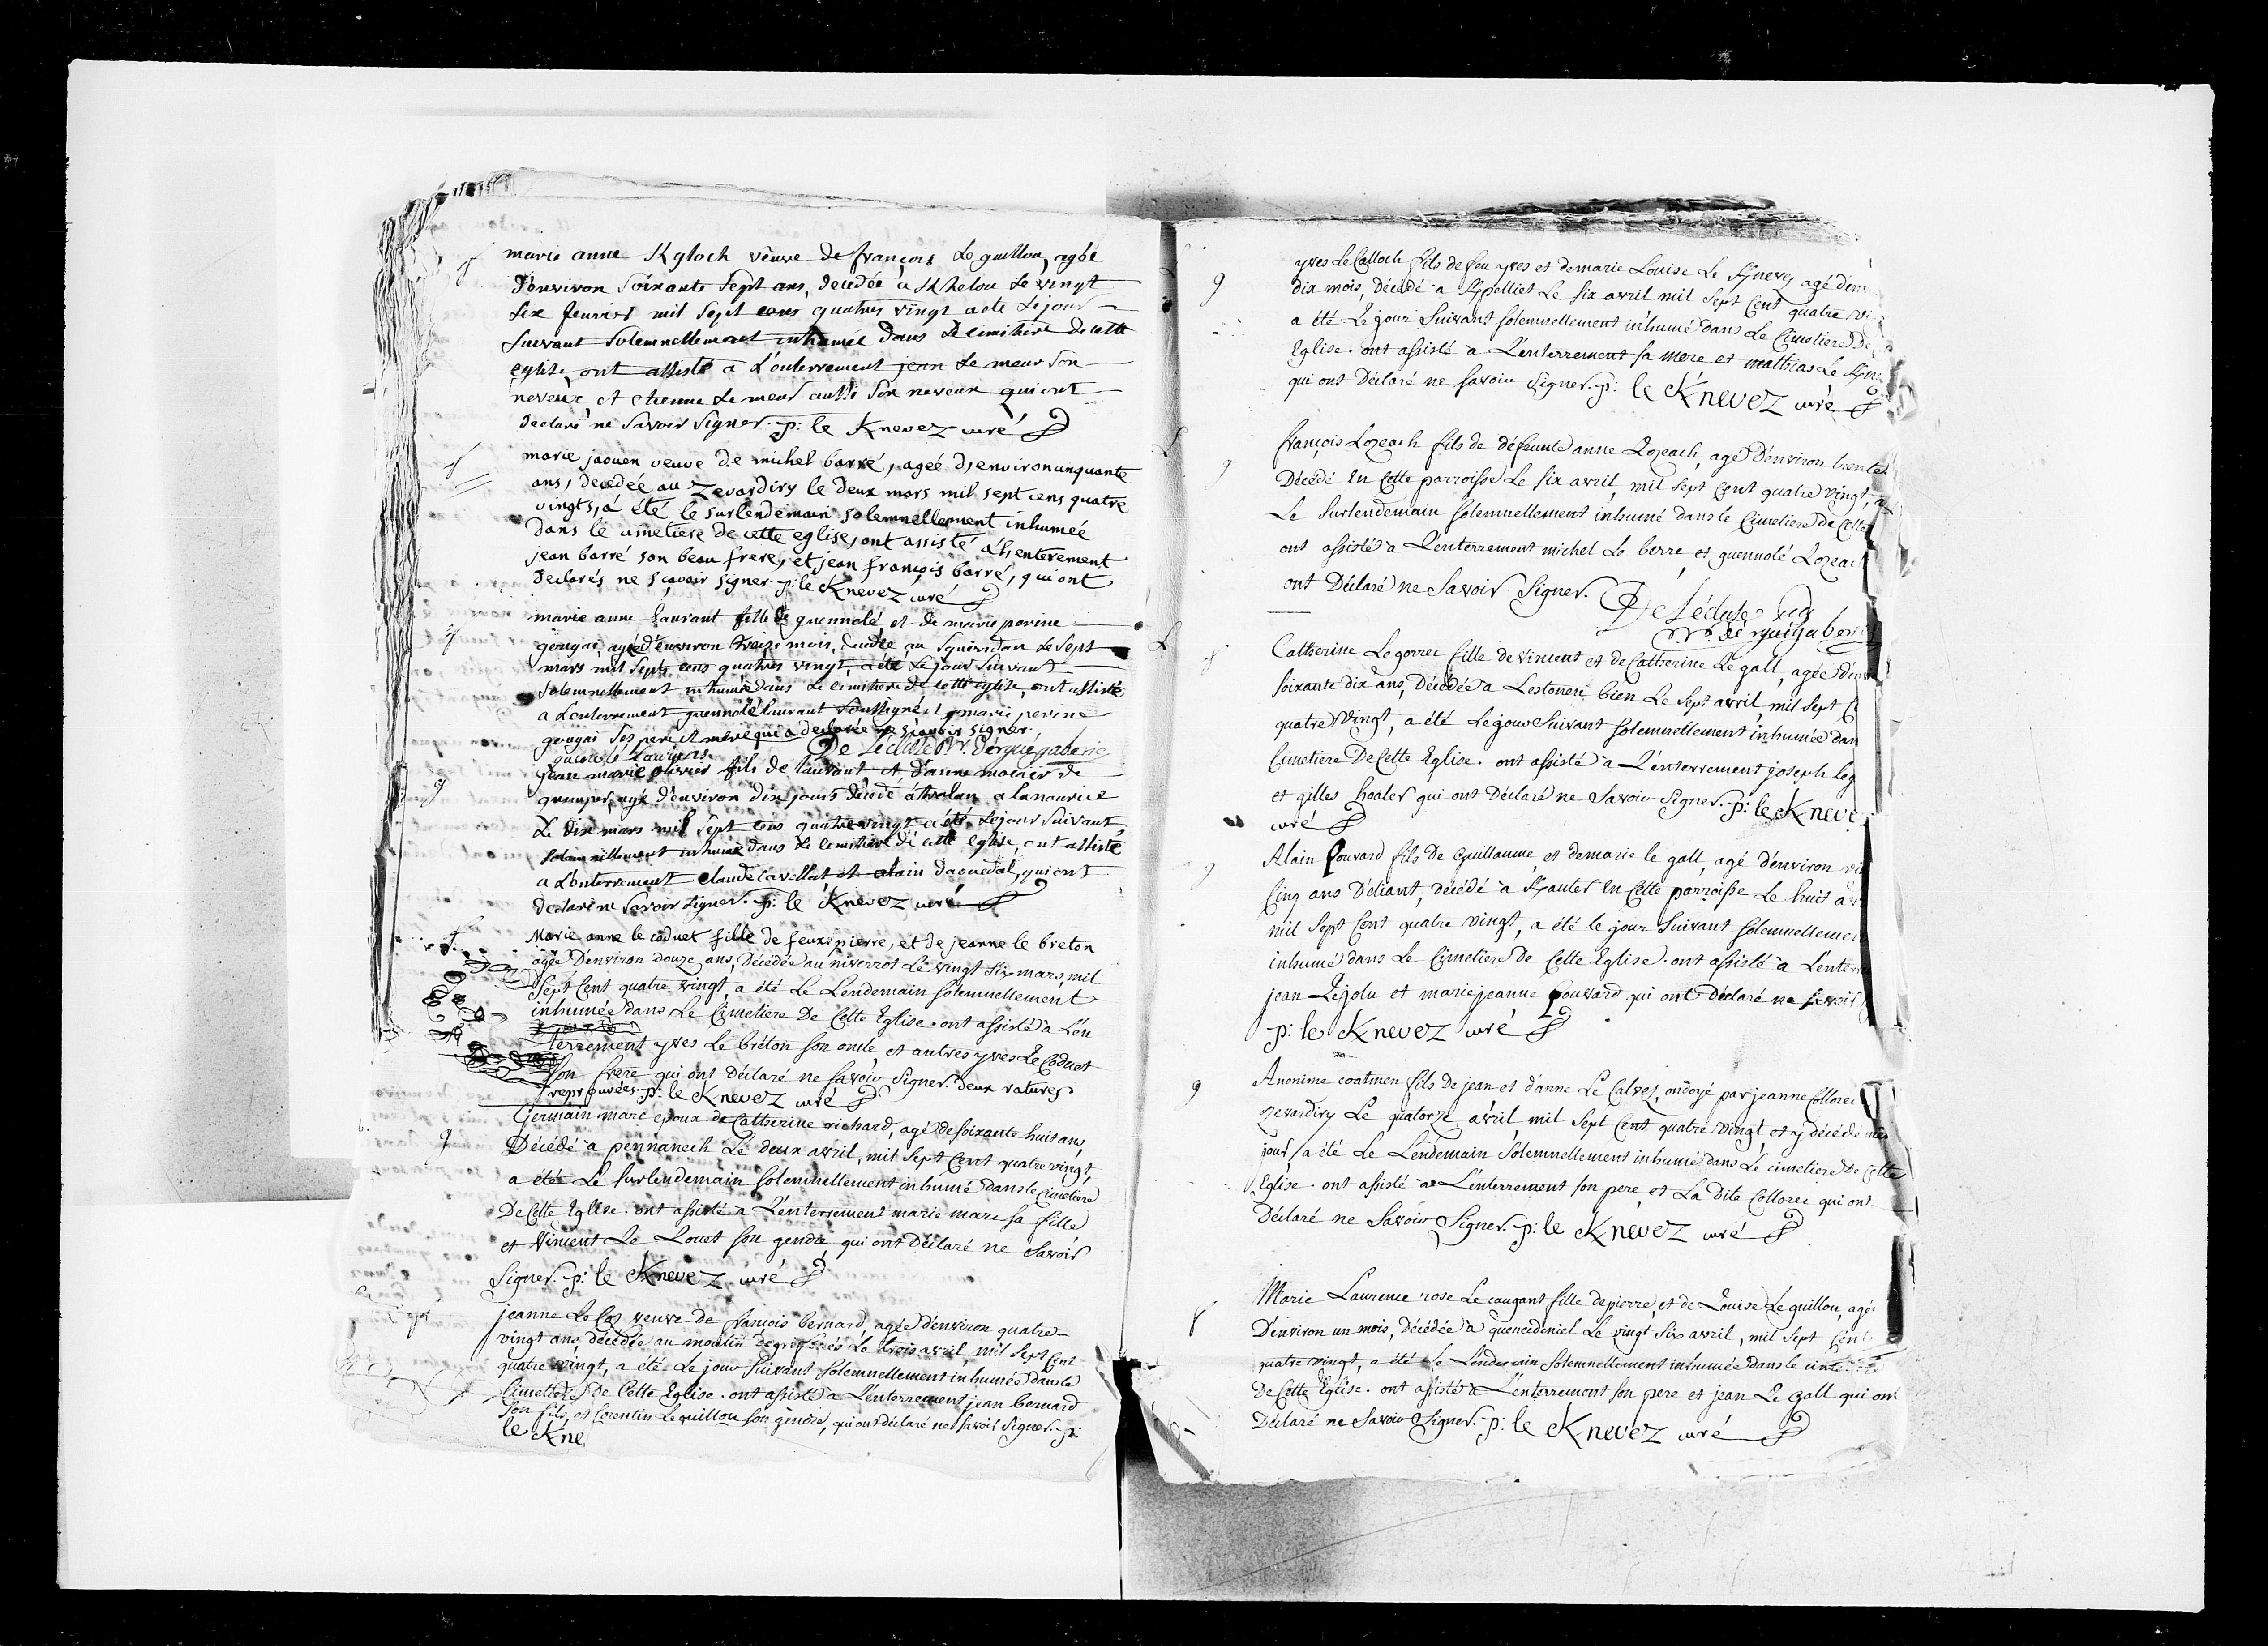 marie anne Kgloch veuve de françois Le guillou, agée
d'environ soixante sept ans, decedée à Khelou le vingt
six feuvrier mil sept cens quatres vingt a ete le jour
suivant solemnellement inhumée dans le cimitiere de cette
eglise, ont assisté a L'enterrement jean Le meur son
neveux et etienne Le meur aussi son neveux qui ont
declaré ne savoir signer. p: le Knevez curé
marie jaouen veuve de michel barré, agée d'environ cinquante
ans, decedée au Zevardiry le deux mars mil sept cens quatre
vingts, a été le surlendemain solemnellement inhumée
dans le cimetiere de cette eglise, ont assisté a l'enterement
jean barré son beau frere, et jean françois barré, qui ont
declarés ne sçavoir signer. p: le Knevez curé
marie anne Laurant fille de guennolé et de marie perine
gougai agée d'environ treize mois, decedée au Squividan Le sept
mars mil sept cens quatres vingt a été Le jour suivant
solemnellement inhumée dans Le cimitiere de cette eglise, ont assisté
a L'enterrement guennolé Laurant soussigné et marie perine
gougai ses pere et mere qui a declarée ne sçavoir signer.
guenolé Laurans De Lécluse Rr. dergué gaberic
jean marie olivier fils de Laurant et d'anne
quimper, agé d'environ dix jours décedé à a la nourice
Le dix mars mil sept cens quatre vingt a été Le jour suivant
solemnellement inhumé dans Le cimitiere de cette eglise, ont assisté
a L'enterrement claude Cavellat et alain daouedal, qui ont
declaré ne savoir signer. p: le Knevez curé
Marie anne le coduet fille de feux pierre, et de jeanne le breton
agée D'environ douze ans, Décédée au niverrot Le vingt six mars, mil
Sept Cent quatre vingt, a été Le Lendemain solemnellement
inhumée dans Le Cimetiere De Cette Eglise. ont assisté à L'en
terrement yves Le bréton son oncle et autres yves Le Coduet
son frere qui ont Déclaré ne savoir signer. deux ratures
reprouvées. p: le Knevez curé
Germain marc epoux de Catherine richard, agé de soixante huit ans
Décédé à pennanech Le deux avril, mil sept Cent quatre vingt,
a été Le surlendemain solemnellement inhumé dans le cimetiere
De Cette Eglise. ont assisté à L'enterrement marie marc sa fille
et Vincent Le Rouet son gendre qui ont Déclaré ne savoir
signer. p: le Knevez curé
jeanne Le Cos veuve de françois bernard, agée d'environ quatre
vingt ans, décédée au moulin de Le trois avril mil sept Cent
quatre vingt, a été Le jour suivant solemnellement inhumée dans le
Cimetiere De Cette Eglise. ont assisté à L'enterrement jean bernard
son fils, et Corentin Le guillou son gendre, qui ont déclaré ne savoir signer. p:
le Kne
yves Le Calloch fils de feu yves et de marie Louise Le Knevez agé d'env
dix mois, Décédé à Kpelliet Le six avril mil sept Cent quatre vi
a été Le jour suivant solemnellement inhumé dans Le Cimetiere De
Eglise. ont assisté à L'enterrement sa mere et mathias Le Kne
qui ont Déclaré ne savoir signer. p: le Knevez curé
françois Lozeach fils de défeunte anne Lozeach, agé d'environ trente
Décédé En Cette parroisse Le six avril, mil sept Cent quatre vingt, a
Le surlendemain solemnellement inhumé dans le Cimetiere de Cette
ont assisté à L'enterrement michel Le berre, et guennolé Lozeach
ont Déclaré ne savoir signer. De Lécluse
de rguégaberic
Catherine Le gorrec fille de Vincent et de Catherine Le gall, agée d'env
soixante dix ans, Décédée à Lestonen bien Le sept avril, mil sept C
quatre vingt, a été Le jour suivant solemnellement inhumée dan
Cimetiere De Cette Eglise. ont assisté à L'enterrement joseph Leg
et gilles hoaler qui ont Déclaré ne savoir signer. p: le Kneve
curé
Alain Rouvard fils de Guillaume, et de marie le gall, agé d'environ vi
Cinq ans Décédé à Kauter En Cette parroisse Le huit av
mil sept Cent quatre vingt, a été le jour suivant solemnellemen
inhumé dans Le Cimetiere De Cette Eglise. ont assisté à L'enterre
jean Lejolu et marie jeanne Rouvard qui ont Déclaré ne savoir
p: le Knevez curé
Anonime coatmen fils de jean et d'anne Le Calvez, ondoyé par jeanne Collorec
zevardiry Le quatorze avril, mil sept Cent quatre vingt, et y décédé
jour, a été Le Lendemain solemnellement inhumé dans Le cimetiere De Cette
Eglise. ont assisté à L'enterrement son pere, et La dite Collorec qui ont
Déclaré ne savoir signer. p: le Knevez curé
Marie Laurence rose Le caugant fille de pierre, et de Louise Le guillou, agée
D'environ un mois, Décédée à quenecdeniel Le vingt six avril, mil sept Cent
quatre vingt, a été Le Lendemain solemnellement inhumée dans le cimetiere
De Cette Eglise. ont assisté à L'enterrement son pere et jean Le gall qui ont
Déclaré ne savoir signer. p: le Knevez curé